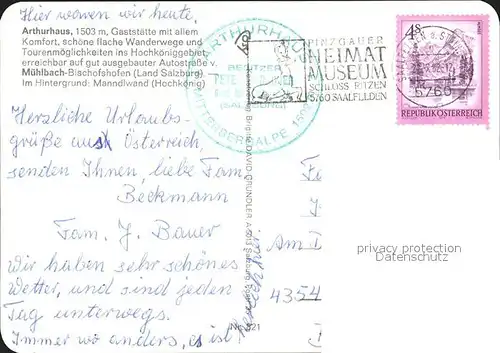 Hier waren wir heute.
Arthurhaus, 1503 m, Gaststätte mit allem
Komfort, schöne flache Wanderwege und
Tourenmöglichkeiten ins Hochköniggebiet,
erreichbar auf gut ausgebauter Autostraße v.
Mühlbach-Bischofshofen (Land Salzburg)
Im Hintergrund: Manndlwand (Hochkönig)
ARTHURHAUS
BESITZER
MITTERBERGALPE
PINZGAUER
HEIMAT
MUSEUM
SCHLOSS RITZEN
5760 SAALFELDEN
5760
REPUBLIK ÖSTERREICH
Herzliche Urlaubs-
grüße aus Österreich,
senden Ihnen, liebe Fam.
Beckmann
Fam. J. Bauer
Wir haben sehr schönes
Wetter, und sind jeden
Tag unterwegs.
Immer wo anders, es ist
herrlich hier.
Brigitte DAVID-GRÜNDLER
Salzburg
Nr.
Am
4354
privacy protection
Datenschutz